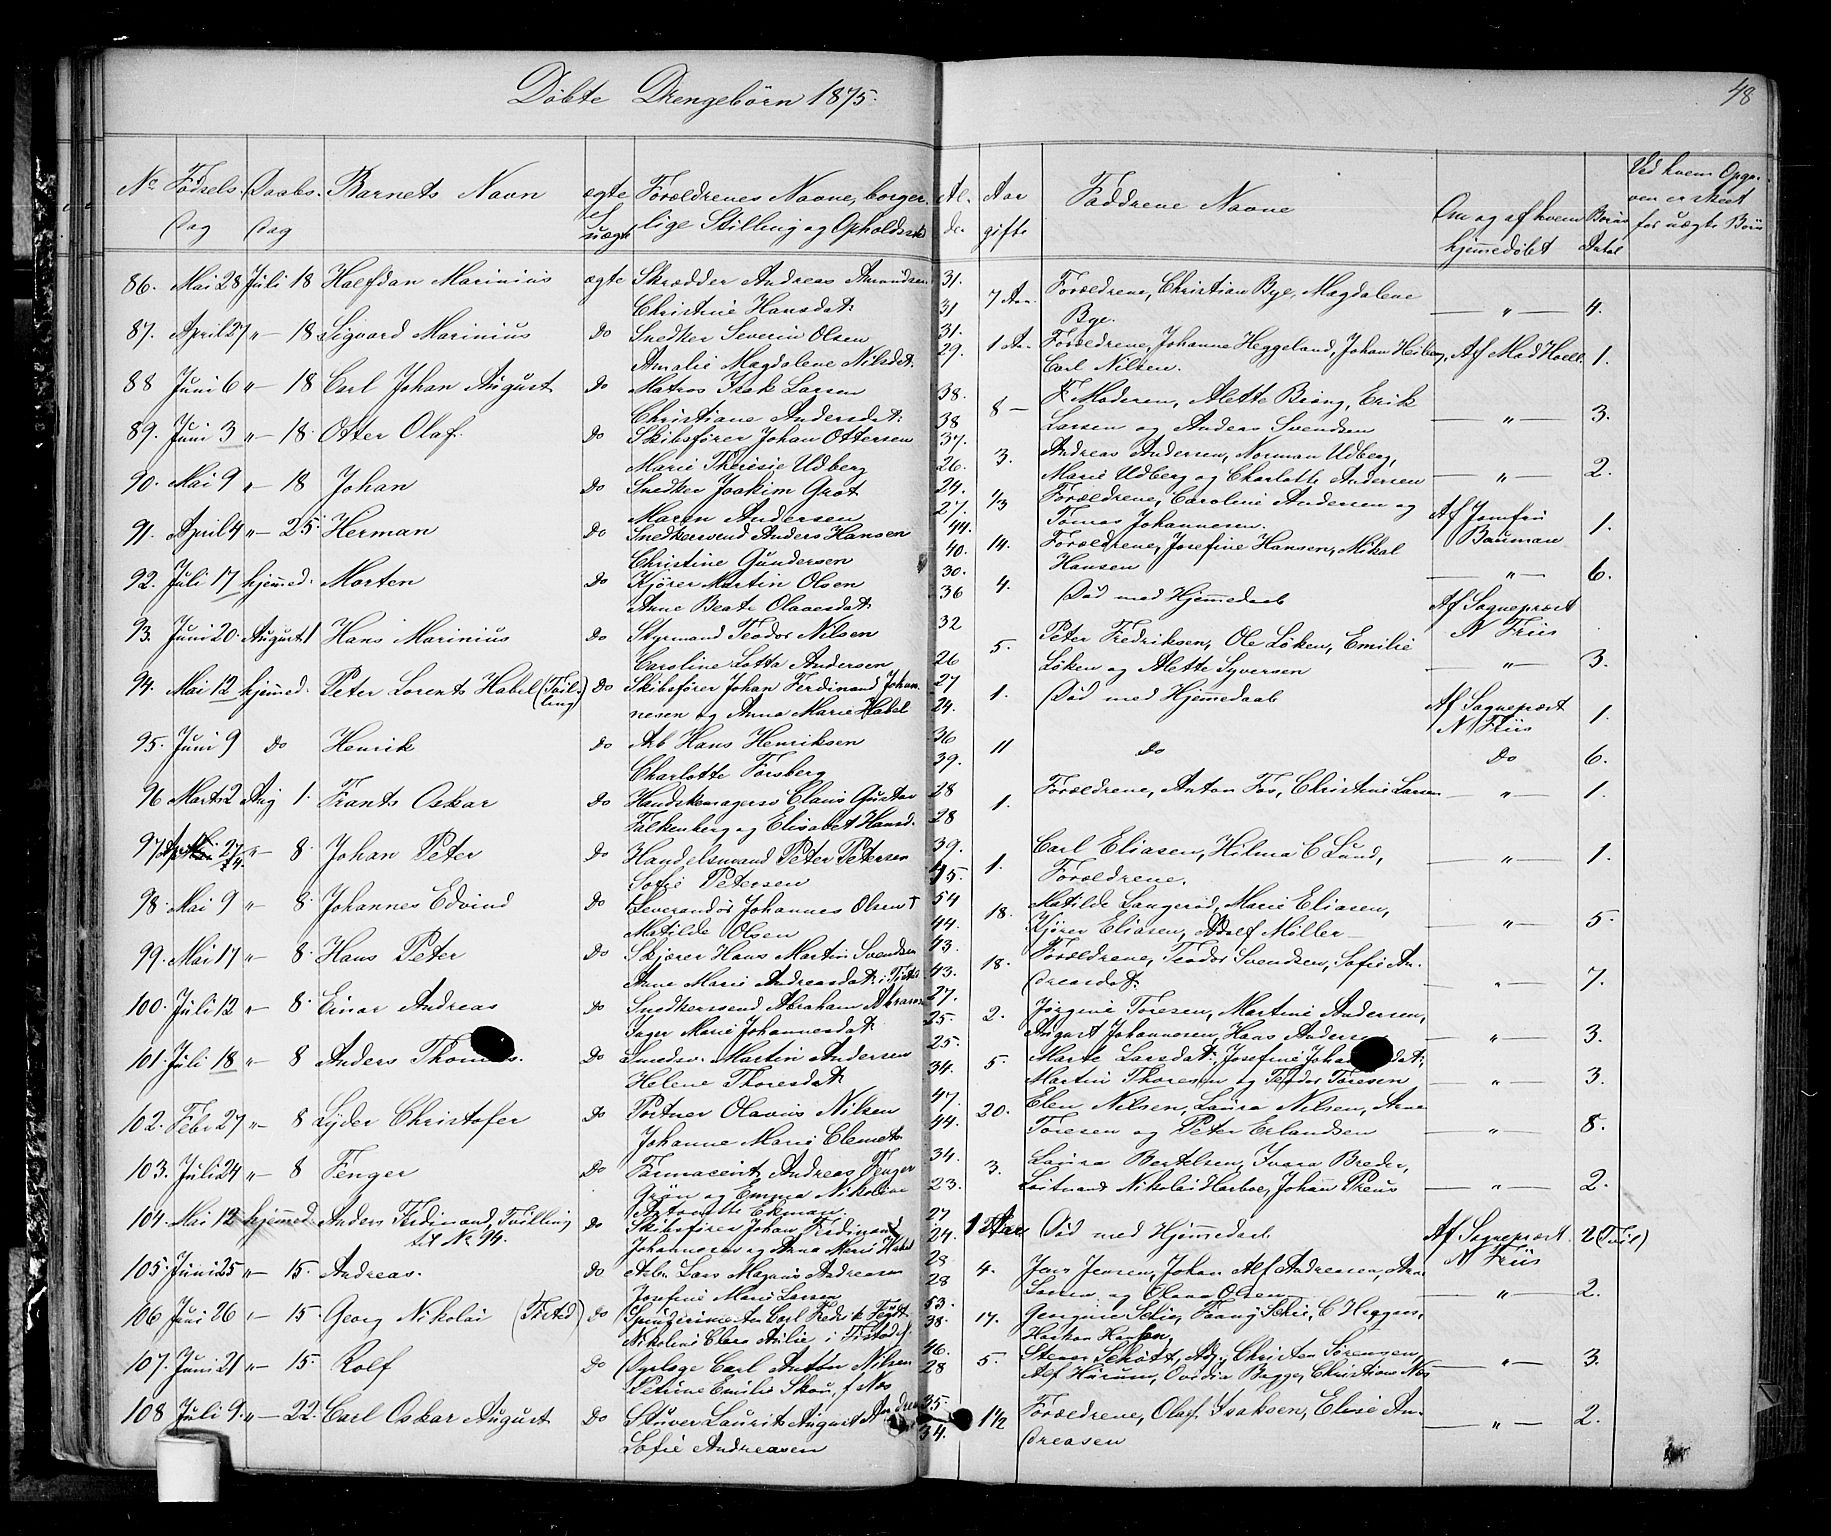 Döbte Drengebörn 1875.
48
No Födsels Dag Daabs Dag Barnets Navn ægte el uægte Forældrenes Navne, borgerlige Stilling og Opholdssted Alder Aar gifte Faddrene Navne Om og af hvem hjemmedöbt Börns Antal Ved hvem Opgaven er skeet for uægte Börn
86. Mai 28 Juli 18 Halfdan Marinius ægte Skrædder Andreas Amundsen 31. 7 Aar Forældrene, Christian Bye, Magdalene — " — 4.
Christine Hansdat: 31 Bye.
87. April 27 " — 18 Sigvard Marinius Do Snedker Severin Olsen 31. 1 Aar Forældrene, Johanne Heggeland, Johan Heiberg, Af Mad Hoell 1.
Amalie Magdalene Nilsdat. 29. Carl Nilsen.
88 Juni 6 " — 18 Carl Johan August Do Matros Isak Larsen 38. 8 — F. Madsen, Alette Bröng, Erik — " — 3.
Christiane Andersdat: 38 Larsen og Anders Svendsen
89. Juni 3 " — 18. Otter Olaf. Do Skibsförer Johan Ottersen 37. 3. Andreas Andersen, Norman Udberg, — " — 2.
Marie Theresie Udberg 26. Marie Udberg og Charlotte Andersen
90. Mai 9 " — 18 Johan Do Snedker Joakim Grot 24. 1/3 Forældrene, Caroline Andersen og Af Jomfru Bauman 1.
Maren Andersen 27. Tomas Johannesen.
91. April 4 " — 25 Herman Do Snedkersvend Anders Hansen 44. 14. Forældrene, Josefine Hansen, Mikal — " — 6.
Christine Gundersen 40. Hansen
92. Juli 17 hjemmed. Morten Do Kjörer Martin Olsen 30. 4. Död med Hjemmedaab Af Sognepræst N Friis
Anne Beate Olavesdat: 36
93. Juni 20. August 1 Hans Marinius Do Styrmand Teodor Nilsen 32 5. Peter Fredriksen, Ole Löken, Emilie — " — 3.
Caroline Lotta Andersen 26 Löken og Alette Syversen
94. Mai 12 hjemmed. Peter Lorents Habel (Tvilling) Do Skibsförer Johan Ferdinand Johan- 27 1. Död med Hjemmedaab Af Sognepræst N Friis 1.
nesen og Anna Marie Habel 24.
95. Juni 9 Do Henrik Do Arb Hans Henriksen 36 11 Do Do 6.
Charlotte Forsberg 39.
96 Marts 2 Aug 1. Frants Oskar Do Handskemagersv Claus Gustav 28 1. Forældrene, Anton Fos, Christine Larsen — " — 1.
Falkenberg og Elisabet Hansd. 28
97 27/24 " — 8. Johan Peter Do Handelsmand Peter Petersen 39. 1. Carl Eliasen, Hilma C Lund, — " — 1.
Sofie Petersen 45. Forældrene.
98. Mai 9 " — 8. Johannes Edvind Do Leverandör Johannes Olsen † 54 18. Matilde Langeröd, Marie Eliasen, — " — 5.
Matilde Olsen 44. Kjörer Eliasen, Adolf Möller
99. Mai 17 " — 8. Hans Peter Do Skjærer Hans Martin Svendsen 43. 18. Forældrene, Teodor Svendsen, Sofie An- — " — 7.
Anne Marie Andreasdat: 43. dreasdat.
100. Juli 12 " — 8. Einar Andreas Do Snedkersvend Abraham Abrams 27. 2. Jörgine Toresen, Martine Andersen, — " — 3.
Inger Marie Johannesdat: 25. August Johannesen, Hans Anders
101. Juli 18 " — 8 Anders Thomas. Do Smedsv. Martin Andersen 25. 5. Marte Larsdat:, Josefine Johan dat: — " — 3.
Helene Thoresdat: 34. Martin Thoresen og Teodor Toresen
102. Febr 27 " — 8 Lyder Christofer Do Portner Olavus Nilsen 47. 20. Elen Nilsen, Laura Nilsen, Arne — " — 8.
Johanne Marie Clemets 44. Toresen og Peter Erlandsen
103. Juli 24 " — 8 Fenger Do Farmaceut Andreas Fenger 34. 3. Laura Bertelsen, Ivara Breder, — " — 2.
Grön og Emma Nikoline 23. Löitnant Nikolai Harboe, Johan Preus
Antonette Ekman.
104. Mai 12 hjemmed Anders Ferdinand, Tvilling Do Skibsförer Johan Ferdinand 27 1 Aar Död med Hjemmedaab. Af Sognepræst N Friis 2 (Tvil)
til No 94. Johannesen og Anna Marie Habel 24.
105. Juni 25 " — 15. Andreas. Do Arb. Lars Magnus Andreasen 28 4. Jens Jensen, Johan Alf Andreasen, — " — 2.
Josefine Marie Larsen 28 Larsen og Olava Olsen
106 Juni 26 " — 15. Georg Nikolai (Tisted) Do Carl Fredrik 53. 17. C Heggen,
Nikoline Clara Aulie i Tistedal 38.
107. Juni 21 " — 15. Rolf Do Dyrlæge Carl Anton Nilsen 46. 5. Schött, Christen Sörensen, — " — 3.
Petrine Emilie Skou, f Næs 28 Alf Hurum, Ovidia Bagge, Christiane Næs
108 Juli 9. " — 22. Carl Oskar August Do Stuver Laurits August Andreas 35. 1 1/2 Forældrene, Olaf Isaksen, Elise An- — " — 2.
Sofie Andreasen 34. dreasen